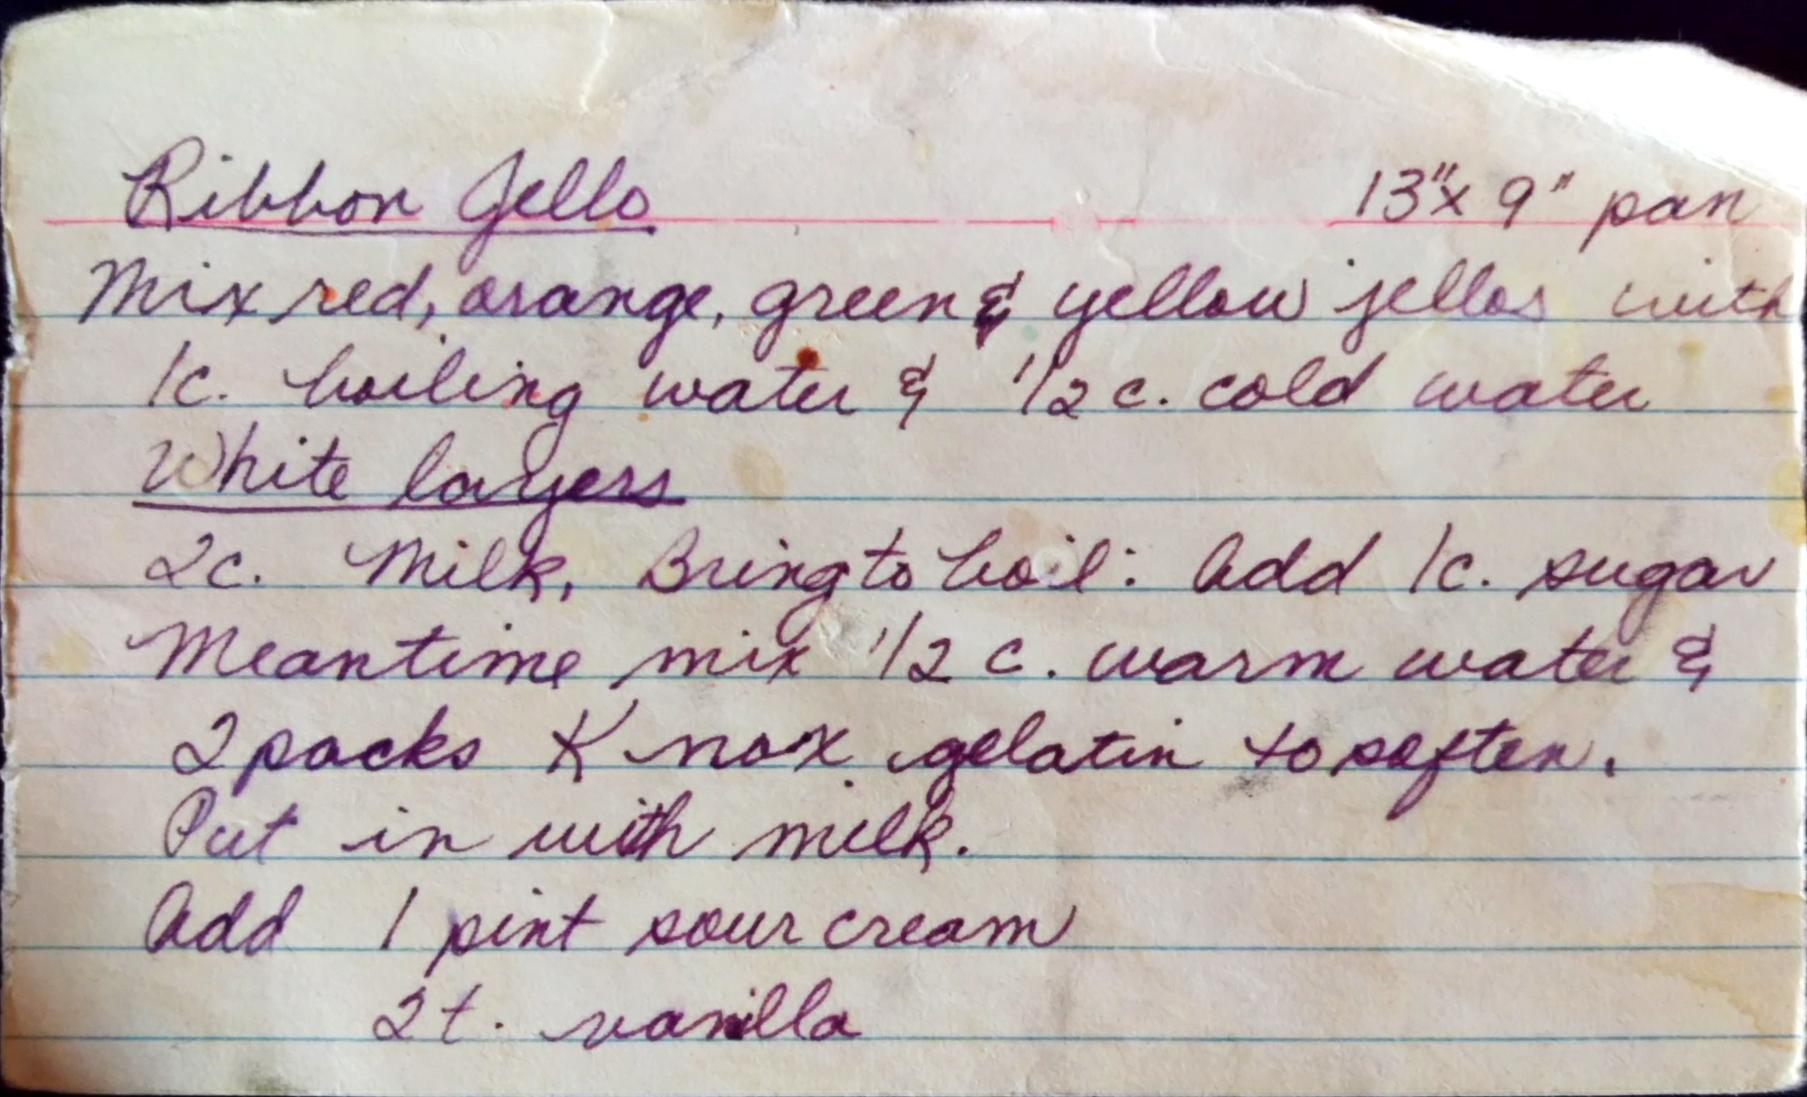 Ribbon Jello 13"x 9" pan
Mix red, orange, green & yellow jellos with
1c. boiling water & 1/2 c. cold water
White layers
2c. Milk, Bring to boil: Add 1c. sugar
Meantime mix 1/2 c. warm water &
2 packs Knox gelatin to soften.
Put in with milk.
Add 1 pint sour cream
2 t. vanilla